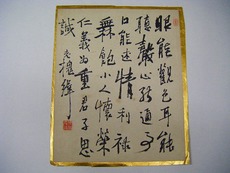 眼能觀色耳能
聽聲心能通
能述情利祿
小人懷榮
仁義為重君子思
誠